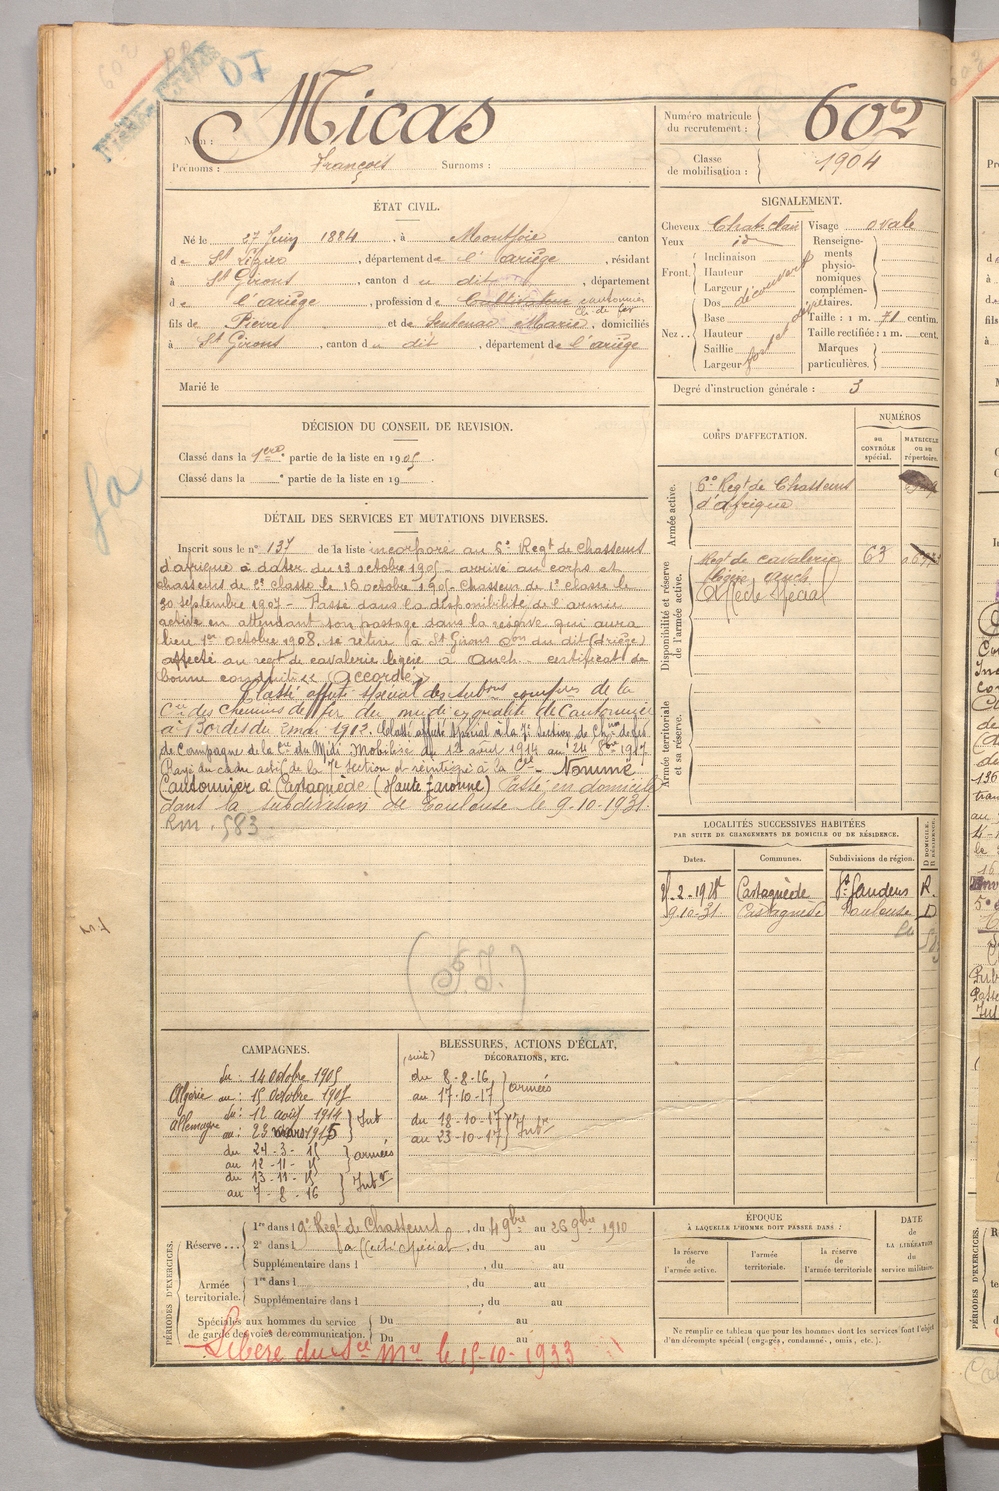 602
DI
Nom : Micas
Prénoms : François Surnoms :
Numéro matricule du recrutement : 602
Classe de mobilisation : 1904
ÉTAT CIVIL.
Né le 27 Juin 1884, à Montjoie canton
de St Lizier, département de l'ariège, résidant
à St Girons, canton du dit, département
de l'ariège, profession de Cultivateur cantonnier
ch. de fer
fils de Pierre et de Sentenac Marie, domiciliés
à St Girons, canton du dit, département de l'ariège
Marié le
SIGNALEMENT.
Cheveux Chatclair Visage ovale
Yeux id
Renseignements physionomiques complémentaires.
Front. Inclinaison
Hauteur
Largeur découvert
Nez.. Dos
Base
Hauteur
Saillie
Largeur fort et
Taille : 1 m. 71 centim.
Taille rectifiée : 1 m. cent.
Marques particulières.
Degré d'instruction générale : 3
DÉCISION DU CONSEIL DE REVISION.
Classé dans la 1ère partie de la liste en 1905.
Classé dans la e partie de la liste en 19
CORPS D'AFFECTATION.
NUMÉROS
au CONTRÔLE spécial.
MATRICULE ou au répertoire.
Armée active.
6e Regt de Chasseurs
d'afrique
Disponibilité et réserve de l'armée active.
Regt de cavalerie 63
légère auch
Affecté Spécial
Armée territoriale et sa réserve.
DÉTAIL DES SERVICES ET MUTATIONS DIVERSES.
Inscrit sous le n° 137 de la liste incorporé au 6e Regt de Chasseurs
d'afrique à dater du 13 octobre 1905 - arrivé au corps et
chasseurs de 2e classe le 16 octobre 1905. Chasseur de 1e classe le
30 septembre 1907 - Passé dans la disponibilité de l'armée
active en attendant son passage dans la réserve qui aura
lieu 1er octobre 1908. se retire à St Girons Con du dit (Ariège)
affecté au regt de cavalerie légère à Auch - certificat de
bonne conduite « Accordé »
Classé affecté spécial des subons compres de la
Cie des Chemins de fer du midi en qualité de Cantonnier
à Bordes du 2 mai 1912. Classé affecté spécial à la 7e Section de Chins de fer
de Campagne de la Cie du Midi Mobilisé du 12 août 1914 au 24 8bre 1917
Rayé du cadre actif de la 7e section et réintégré à la Cie - Nommé
Cantonnier à Castagnède (Haute Garonne) Passé en domicile
dans la subdivision de Toulouse le 9-10-1931.
Rm. 583
LOCALITÉS SUCCESSIVES HABITÉES
PAR SUITE DE CHANGEMENTS DE DOMICILE OU DE RÉSIDENCE.
Dates. Communes. Subdivisions de région. D DOMICILE. R RÉSIDENCE.
-2-1928 Castagnède St Gaudens R.
9.10-31 Castagnède Toulouse D
CAMPAGNES.
Algérie du : 14 Octobre 1905
au : 15 Octobre 1907
Allemagne du : 12 août 1914
au : 23 mars 1915 } Intr
du 24-3-15
au 12-11-15 } armées
du 13-11-15
au 7-8-16 } Intr
BLESSURES, ACTIONS D'ÉCLAT,
DÉCORATIONS, ETC.
(suite)
du 8-8-16
au 17-10-17 } armées
du 18-10-17
au 23-10-17 } Intr
PÉRIODES D'EXERCICES.
Réserve... 1re dans l 9e Regt de Chasseurs, du 4 9bre au 26 9bre 1910
2e dans l affecté spécial, du au
Supplémentaire dans l , du au
Armée territoriale. 1re dans l , du au
Supplémentaire dans l , du au
Spéciales aux hommes du service de garde des voies de communication. Du au
Du au
Libéré du Sce Mre le 15-10-1933
ÉPOQUE
À LAQUELLE L'HOMME DOIT PASSER DANS :
la réserve de l'armée active.
l'armée territoriale.
la réserve de l'armée territoriale
DATE de LA LIBÉRATION du service militaire.
Ne remplir ce tableau que pour les hommes dont les services font l'objet
d'un décompte spécial (engagés, condamnés, omis, etc.).